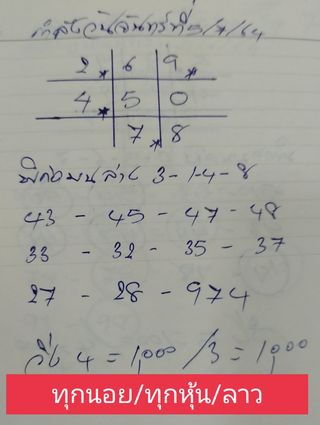 กำลังวันจันทร์ที่ 5/7/64
2* 6 9*
4* 5 0
7* 8
พิกัดบนล่าง 3-1-4-8
43 - 45 - 47 - 48
33 - 32 - 35 - 37
27 - 28 - 974
วิ่ง 4 = 1,000 / 3 = 1,000
ทุกนอย/ทุกหุ้น/ลาว